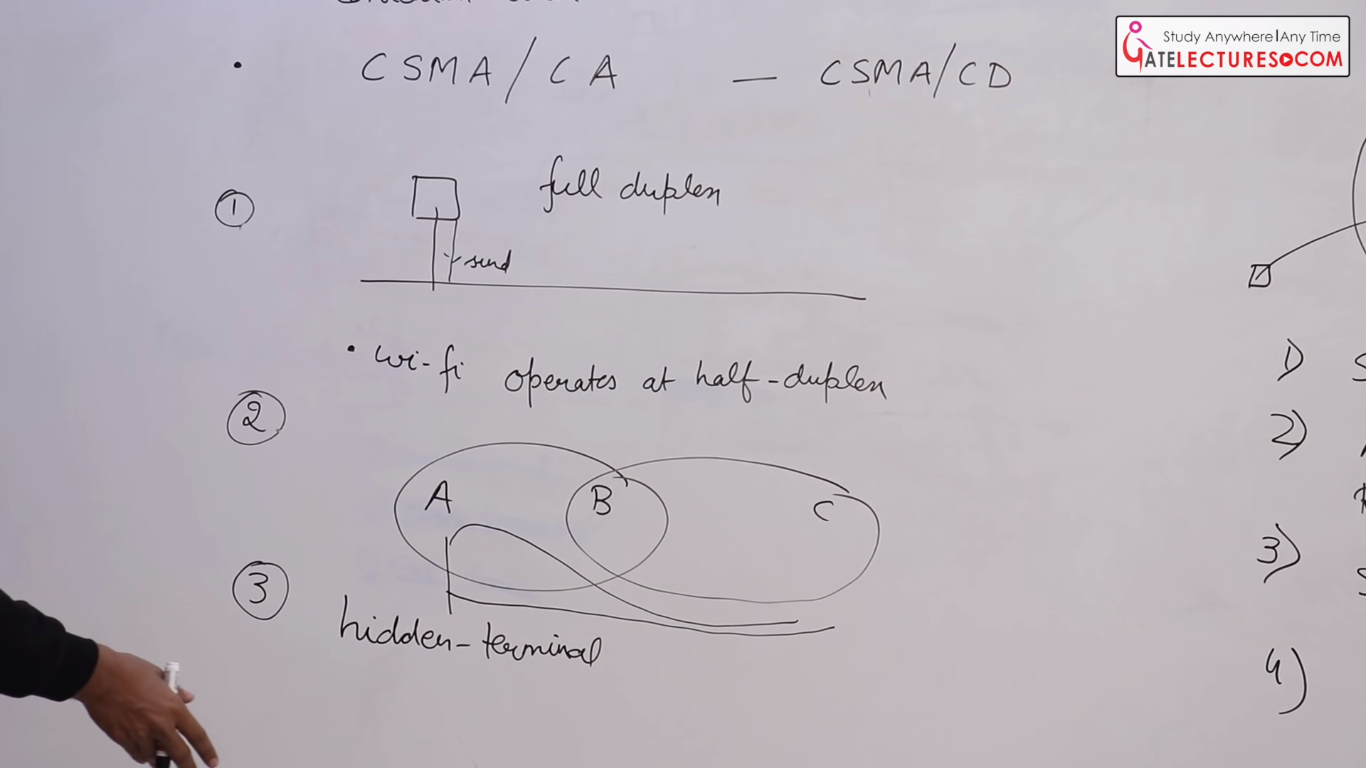 Study Anywhere|Any Time
GATELECTURES.COM
• CSMA/CA — CSMA/CD
① full duplex
send
• wi-fi operates at half-duplex
②
A B C
③
hidden-terminal
1)
2)
3)
4)